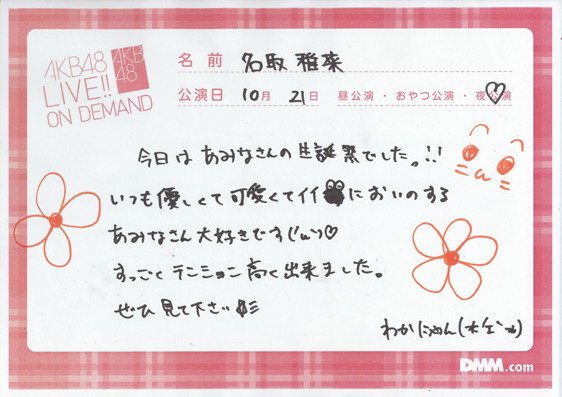 AKB48
LIVE!!
ON DEMAND
AKB
48
名前 名取稚菜
公演日 10月 21日 昼公演・おやつ公演・夜公演
今日はあみなさんの生誕祭でした。!!
いつも優しくて可愛くてイイ においのする
あみなさん大好きです('ω')♡
すっごくテンション高く出来ました。
ぜひ見て下さい
わかにゃん
DMM.com